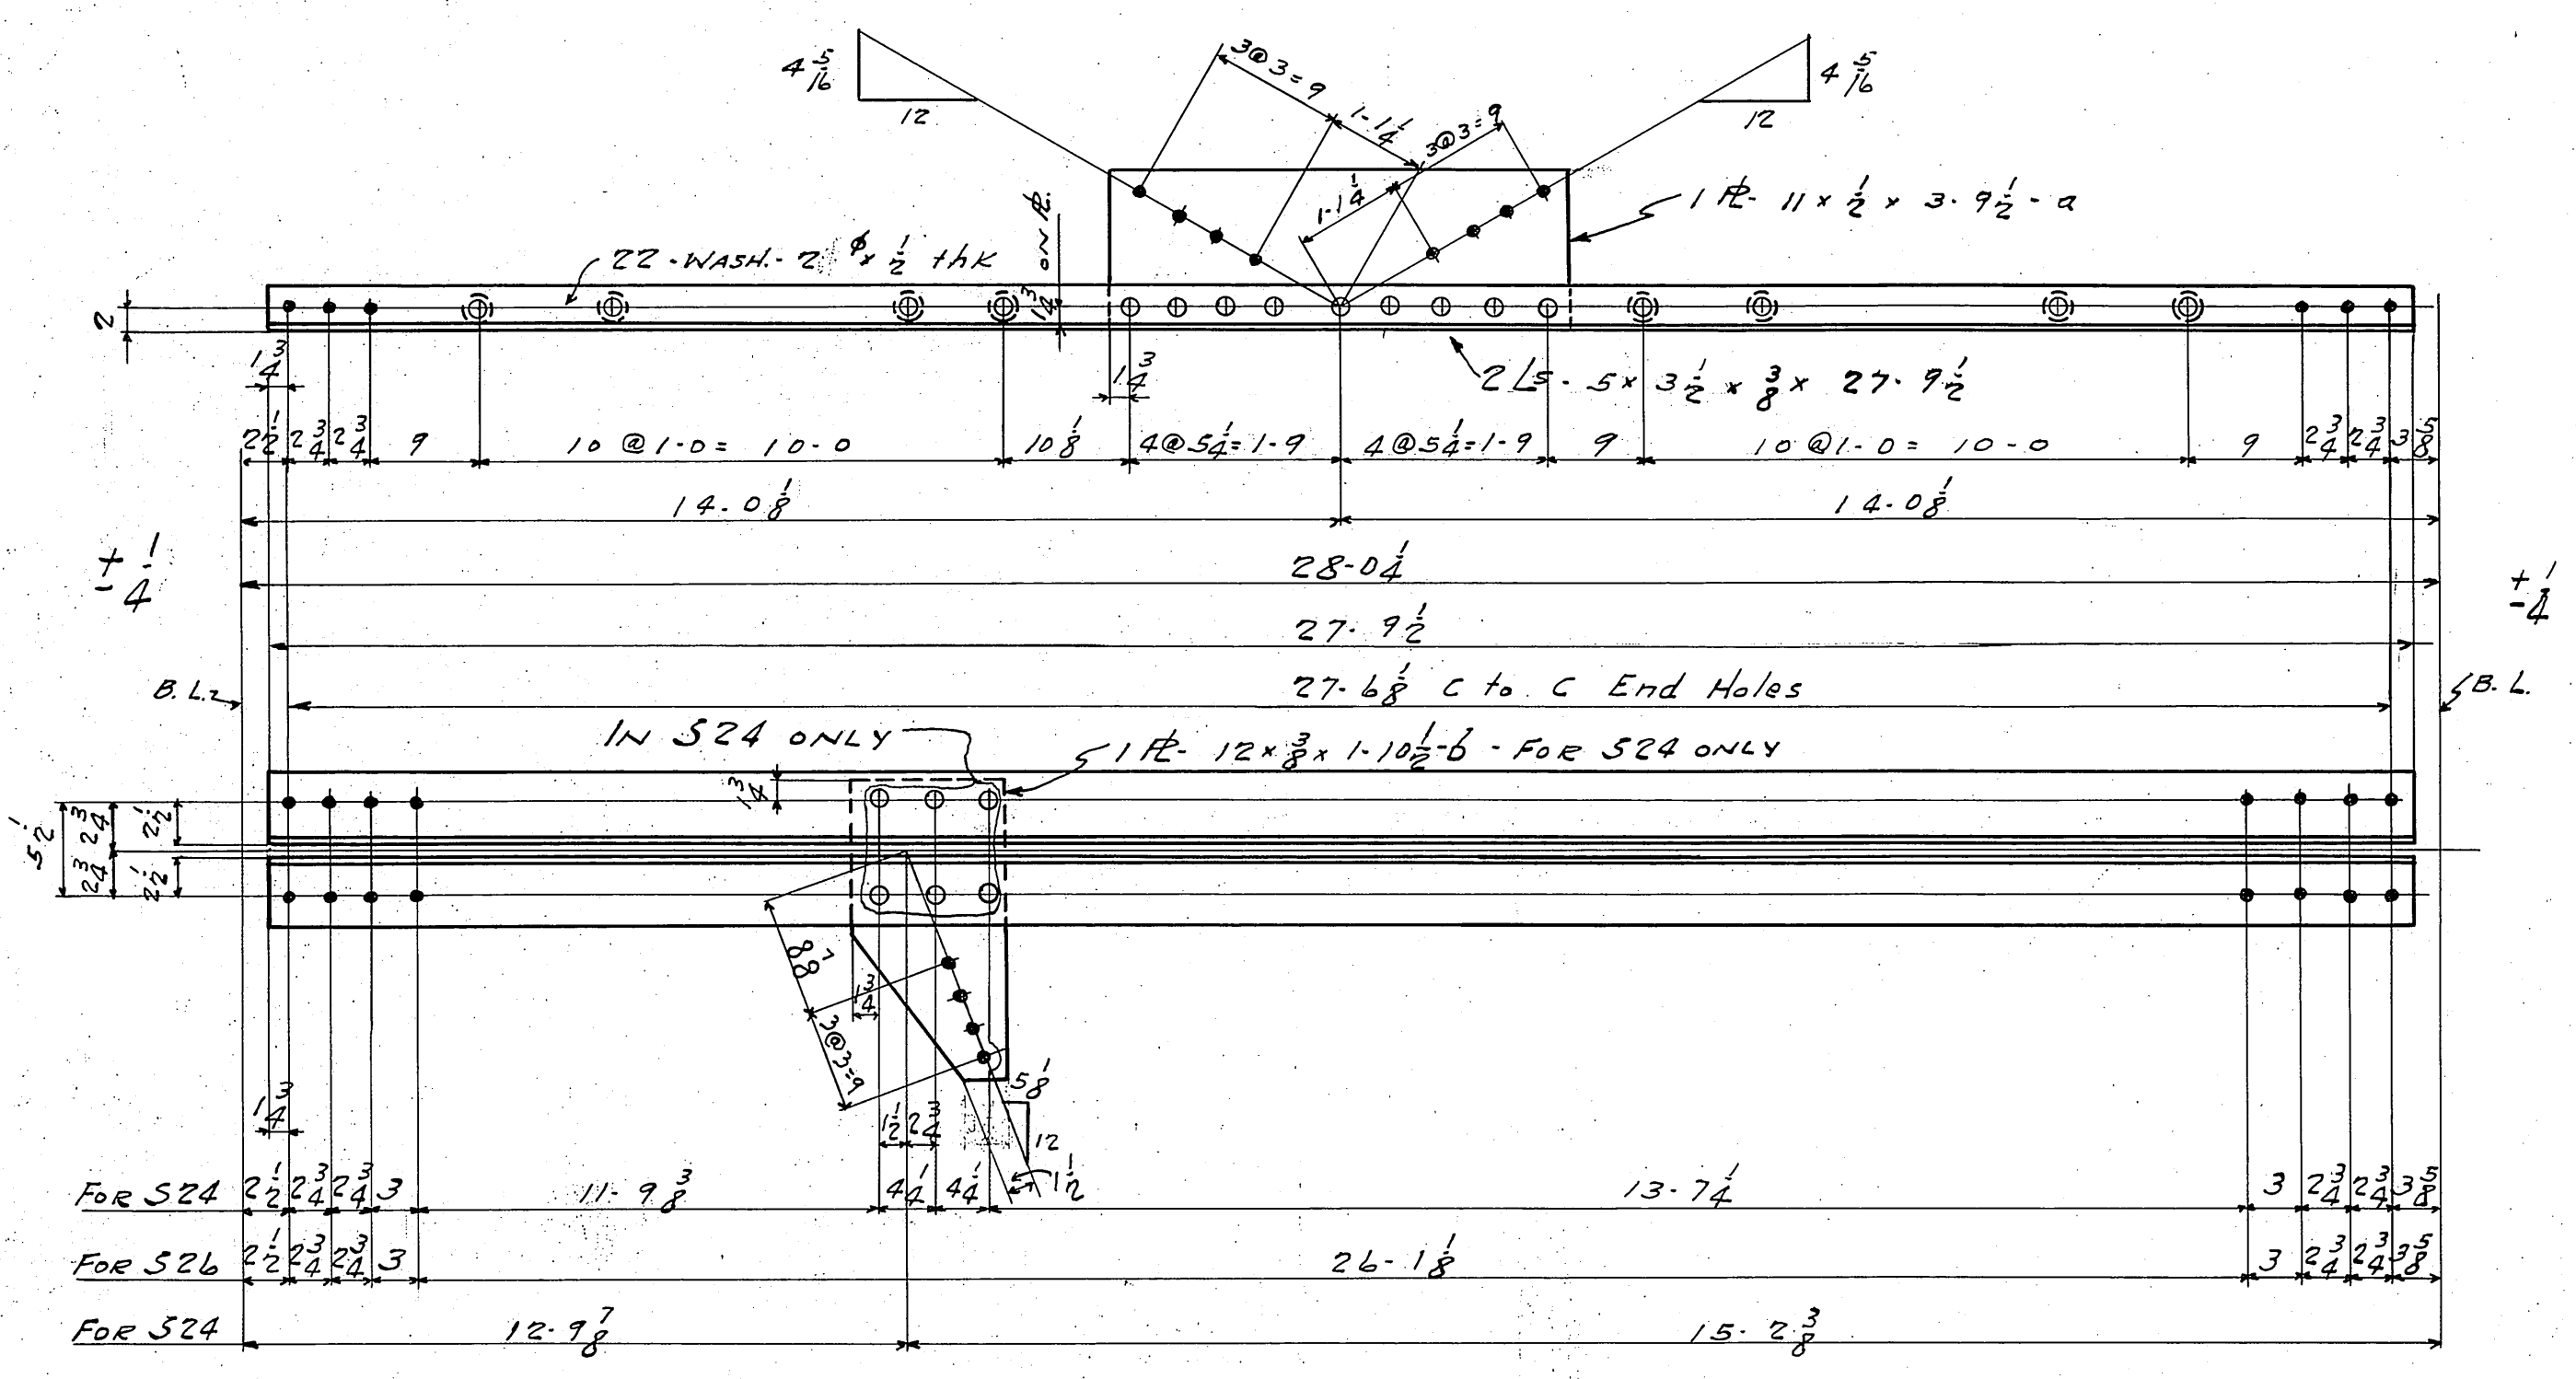 4 5/16
12
3@3=9
1-1 1/4
3@3=9
1-1 1/4
4 5/16
12
1 PL- 11 x 1/2 x 3-9 1/2 - a
22-WASH.- 2 φ x 1/2 thK
1 3/4 ON PL.
2
1 3/4
1 3/4
2 Ls - 5 x 3 1/2 x 3/8 x 27-9 1/2
2 1/2 2 3/4 2 3/4 9 10 @ 1-0 = 10-0 10 1/8 4@5 1/4 = 1-9 4@5 1/4 = 1-9 9 10 @ 1-0 = 10-0 9 2 3/4 2 3/4 3 5/8
14-0 1/8 14-0 1/8
± 1/4 28-0 1/4 ± 1/4
27-9 1/2
B.L. 27-6 1/8 C to C End Holes B.L.
IN S24 ONLY
1 PL- 12 x 3/8 x 1-10 1/2 - b - FOR S24 ONLY
1 3/4
5 1/2 2 3/4 2 1/2
2 3/4 2 1/2
8 7/8
1 3/4
3@3=9
5 1/8
12
1 3/4
1 1/2 2 3/4
1 1/2
FOR S24 2 1/2 2 3/4 2 3/4 3 11-9 3/8 4 1/4 4 1/4 13-7 1/4 3 2 3/4 2 3/4 3 5/8
FOR S26 2 1/2 2 3/4 2 3/4 3 26-1 1/8 3 2 3/4 2 3/4 3 5/8
FOR S24 12-9 7/8 15-2 3/8